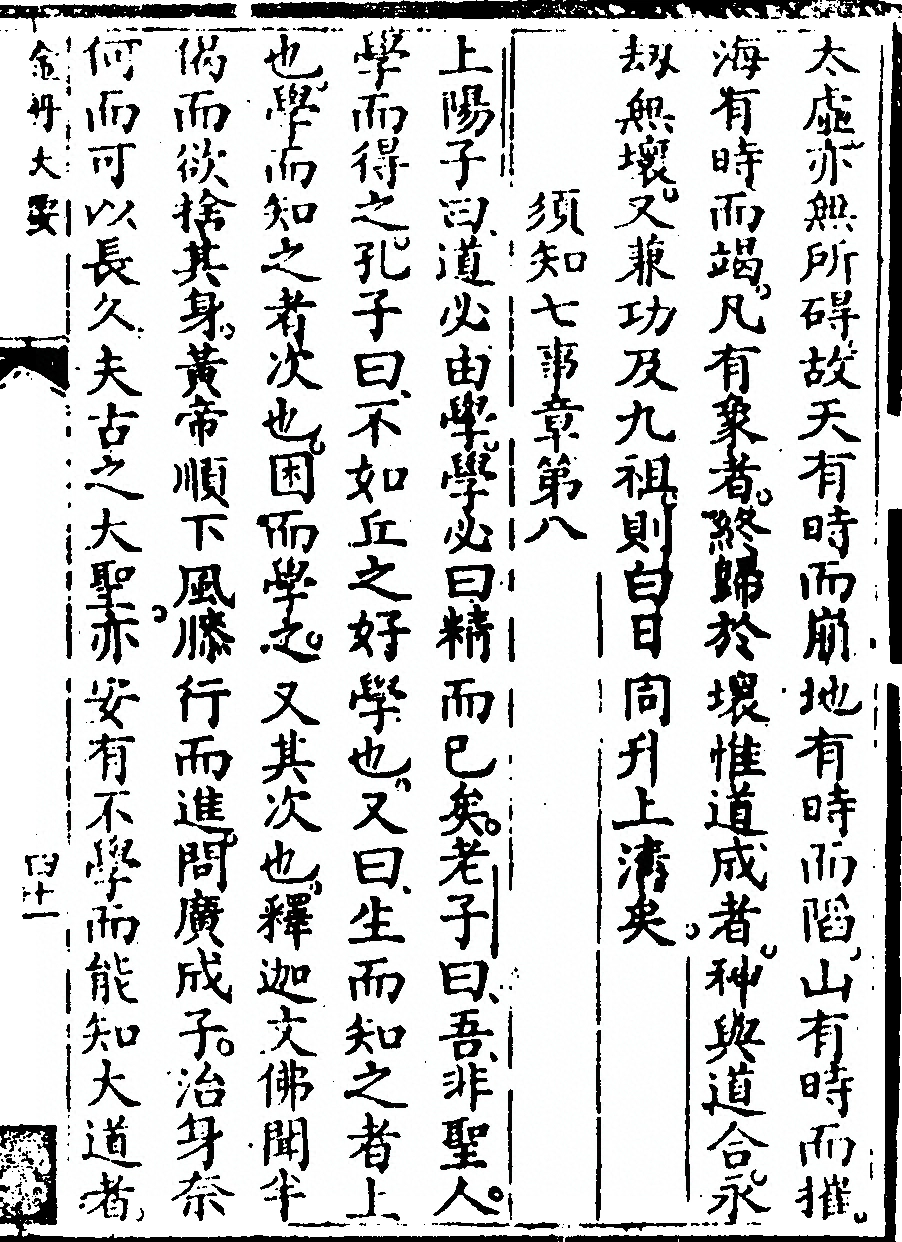 太虛亦無所碍故天有時而崩地有時而陷山有時而摧
海有時而竭凡有象者終歸於壞惟道成者神與道合永
劫無壞又兼功及九祖則白日同升上清矣
須知七事章第八
上陽子曰道必由學學必曰精而已矣老子曰吾非聖人
學而得之孔子曰不如丘之好學也又曰生而知之者上
也學而知之者次也困而學之又其次也釋迦文佛聞半
偈而欲捨其身黃帝順下風膝行而進問廣成子治身奈
何而可以長久夫古之大聖亦安有不學而能知大道者
金丹大要
四十一